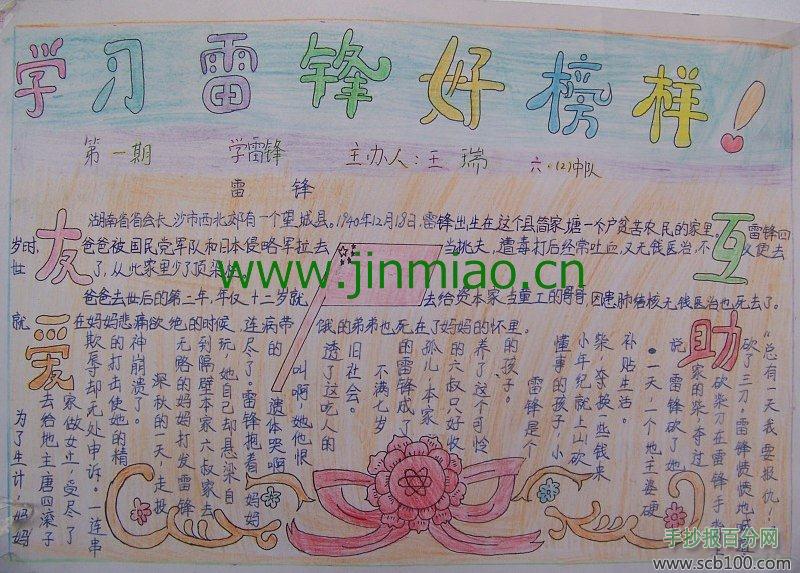 学习雷锋好榜样！
第一期 学雷锋 主办人：王瑞 六·(2)中队
雷锋
友爱
互助
湖南省省会长沙市西北郊有一个望城县。1940年12月18日，雷锋出生在这个县简家塘一个户贫苦农民的家里。雷锋四
岁时，爸爸被国民党军队和日本侵略军拉去当挑夫，遭毒打后经常吐血，又无钱医治，不
世了，从此家里少了顶
爸爸去世后的第二年，年仅十二岁就
去给资本家当童工的哥哥，因患肺结核无钱医治也死去了。
就在妈妈悲痛欲绝的时候，连病带
饿的弟弟也死在了妈妈的怀里。
为了生计，妈妈
去给地主唐四滚子
家做女工，受尽了
欺辱却无处申诉。一连串
的打击使她的精
神崩溃了。
深秋的一天，走投
无路的妈妈打发雷锋
到隔壁本家六叔家去
玩，她自己却悬梁自
尽了。雷锋抱着妈妈
遗体哭啊，
叫啊，她他恨
透了这吃人的
旧社会。
不满七岁
的雷锋成了
孤儿，本家
的六叔只好收
养了这个可怜
的孩子。
雷锋是个
懂事的孩子，小
小年纪就上山砍
柴，夺换些钱来
补贴生活。
一天，一个地主婆硬
说雷锋砍了她
家的柴，夺过
砍柴刀在雷锋手
砍了三刀。雷锋愤愤地
“总有一天我要报仇！”
www.jinmiao.cn
手抄报百分网
www.scb100.com